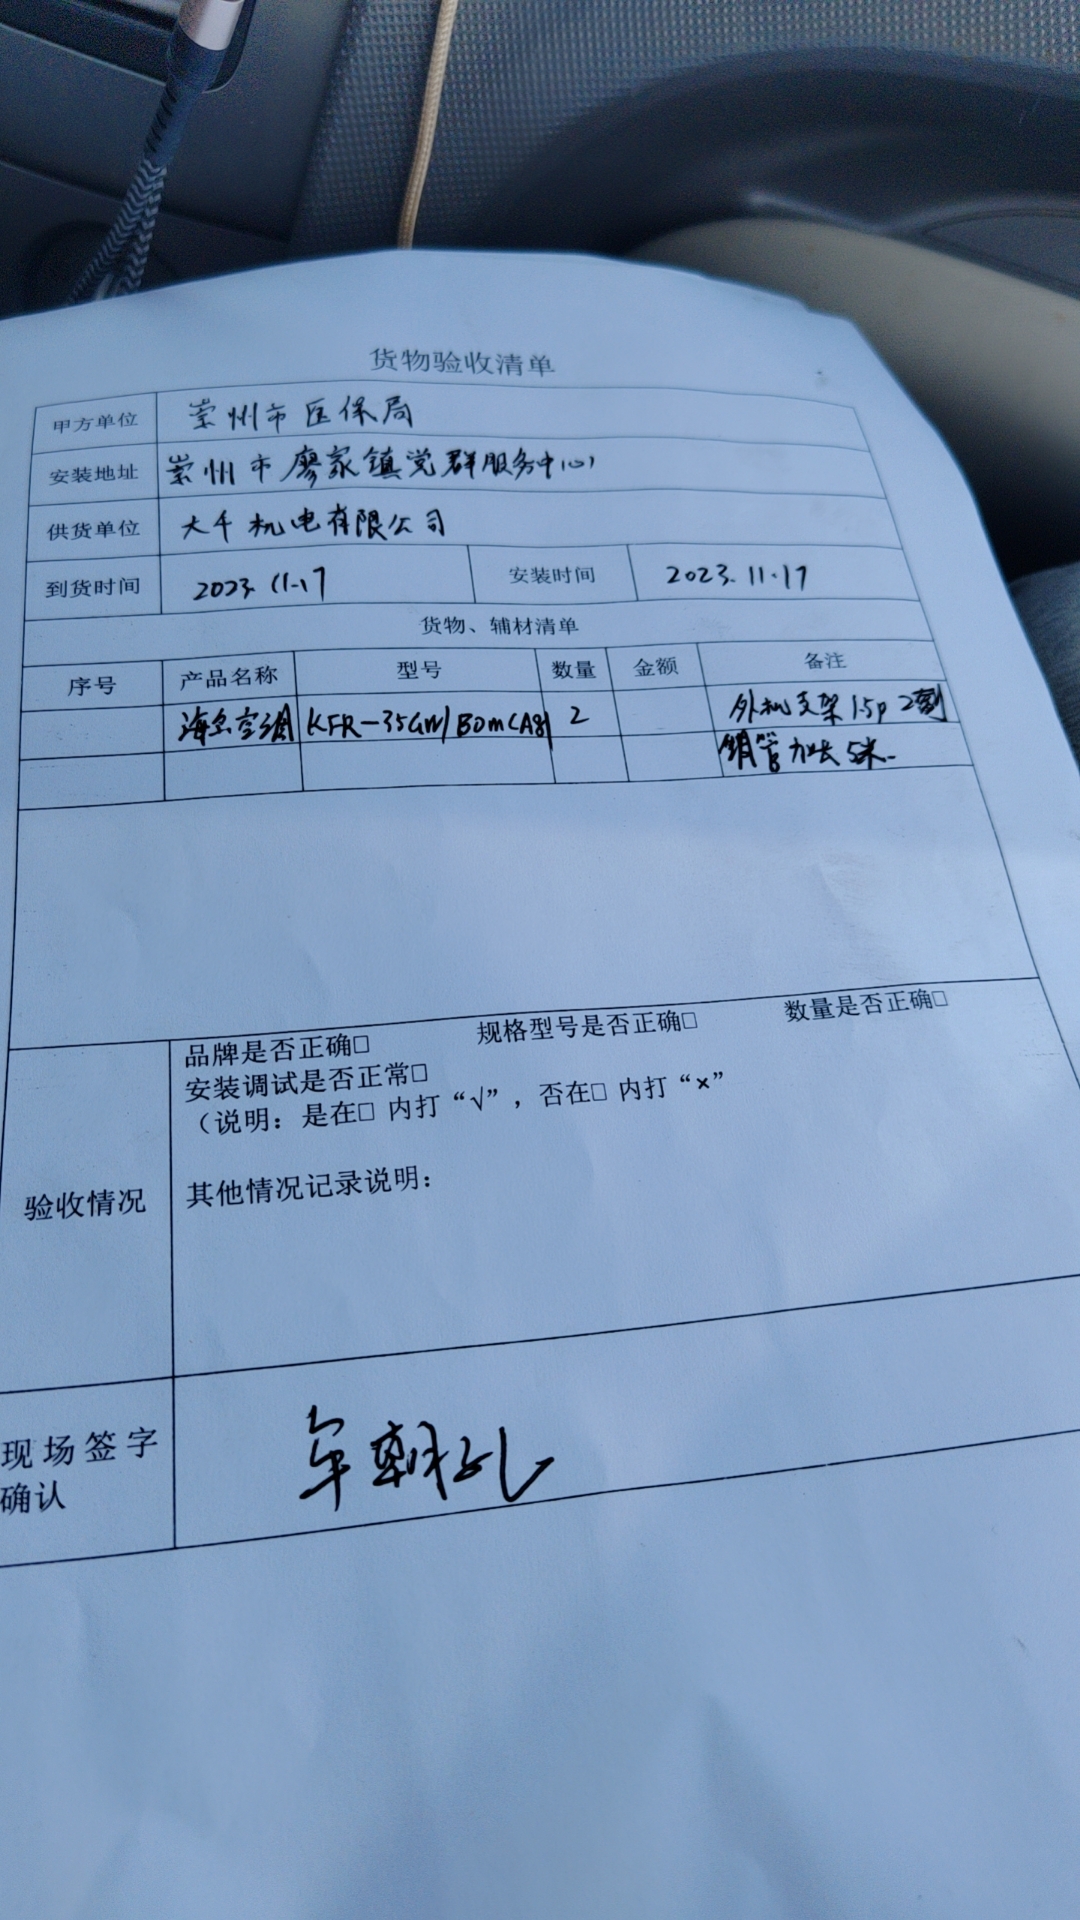 货物验收清单
甲方单位 崇州市医保局
安装地址 崇州市廖家镇党群服务中心
供货单位 大千机电有限公司
到货时间 2023.11.17 安装时间 2023.11.17
货物、辅材清单
序号 产品名称 型号 数量 金额 备注
空调 KFR-35GW/ 2 外机支架1.5P 2副
铜管加长5米.
品牌是否正确□ 规格型号是否正确□ 数量是否正确□
安装调试是否正常□
（说明：是在□ 内打“√”，否在□ 内打“×”
验收情况
其他情况记录说明：
现场签字
确认